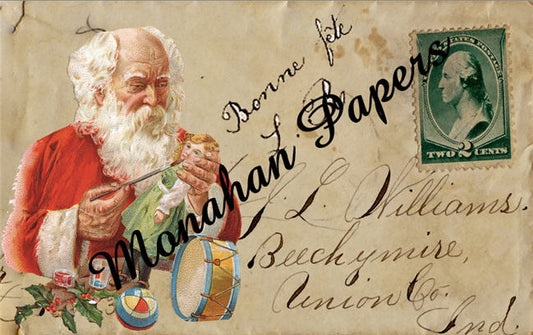 Bonne fête
Monahan Papers
UNITED STATES POSTAGE
TWO 2 CENTS
J. L. Williams.
Beechymire,
Union Co.
Ind.